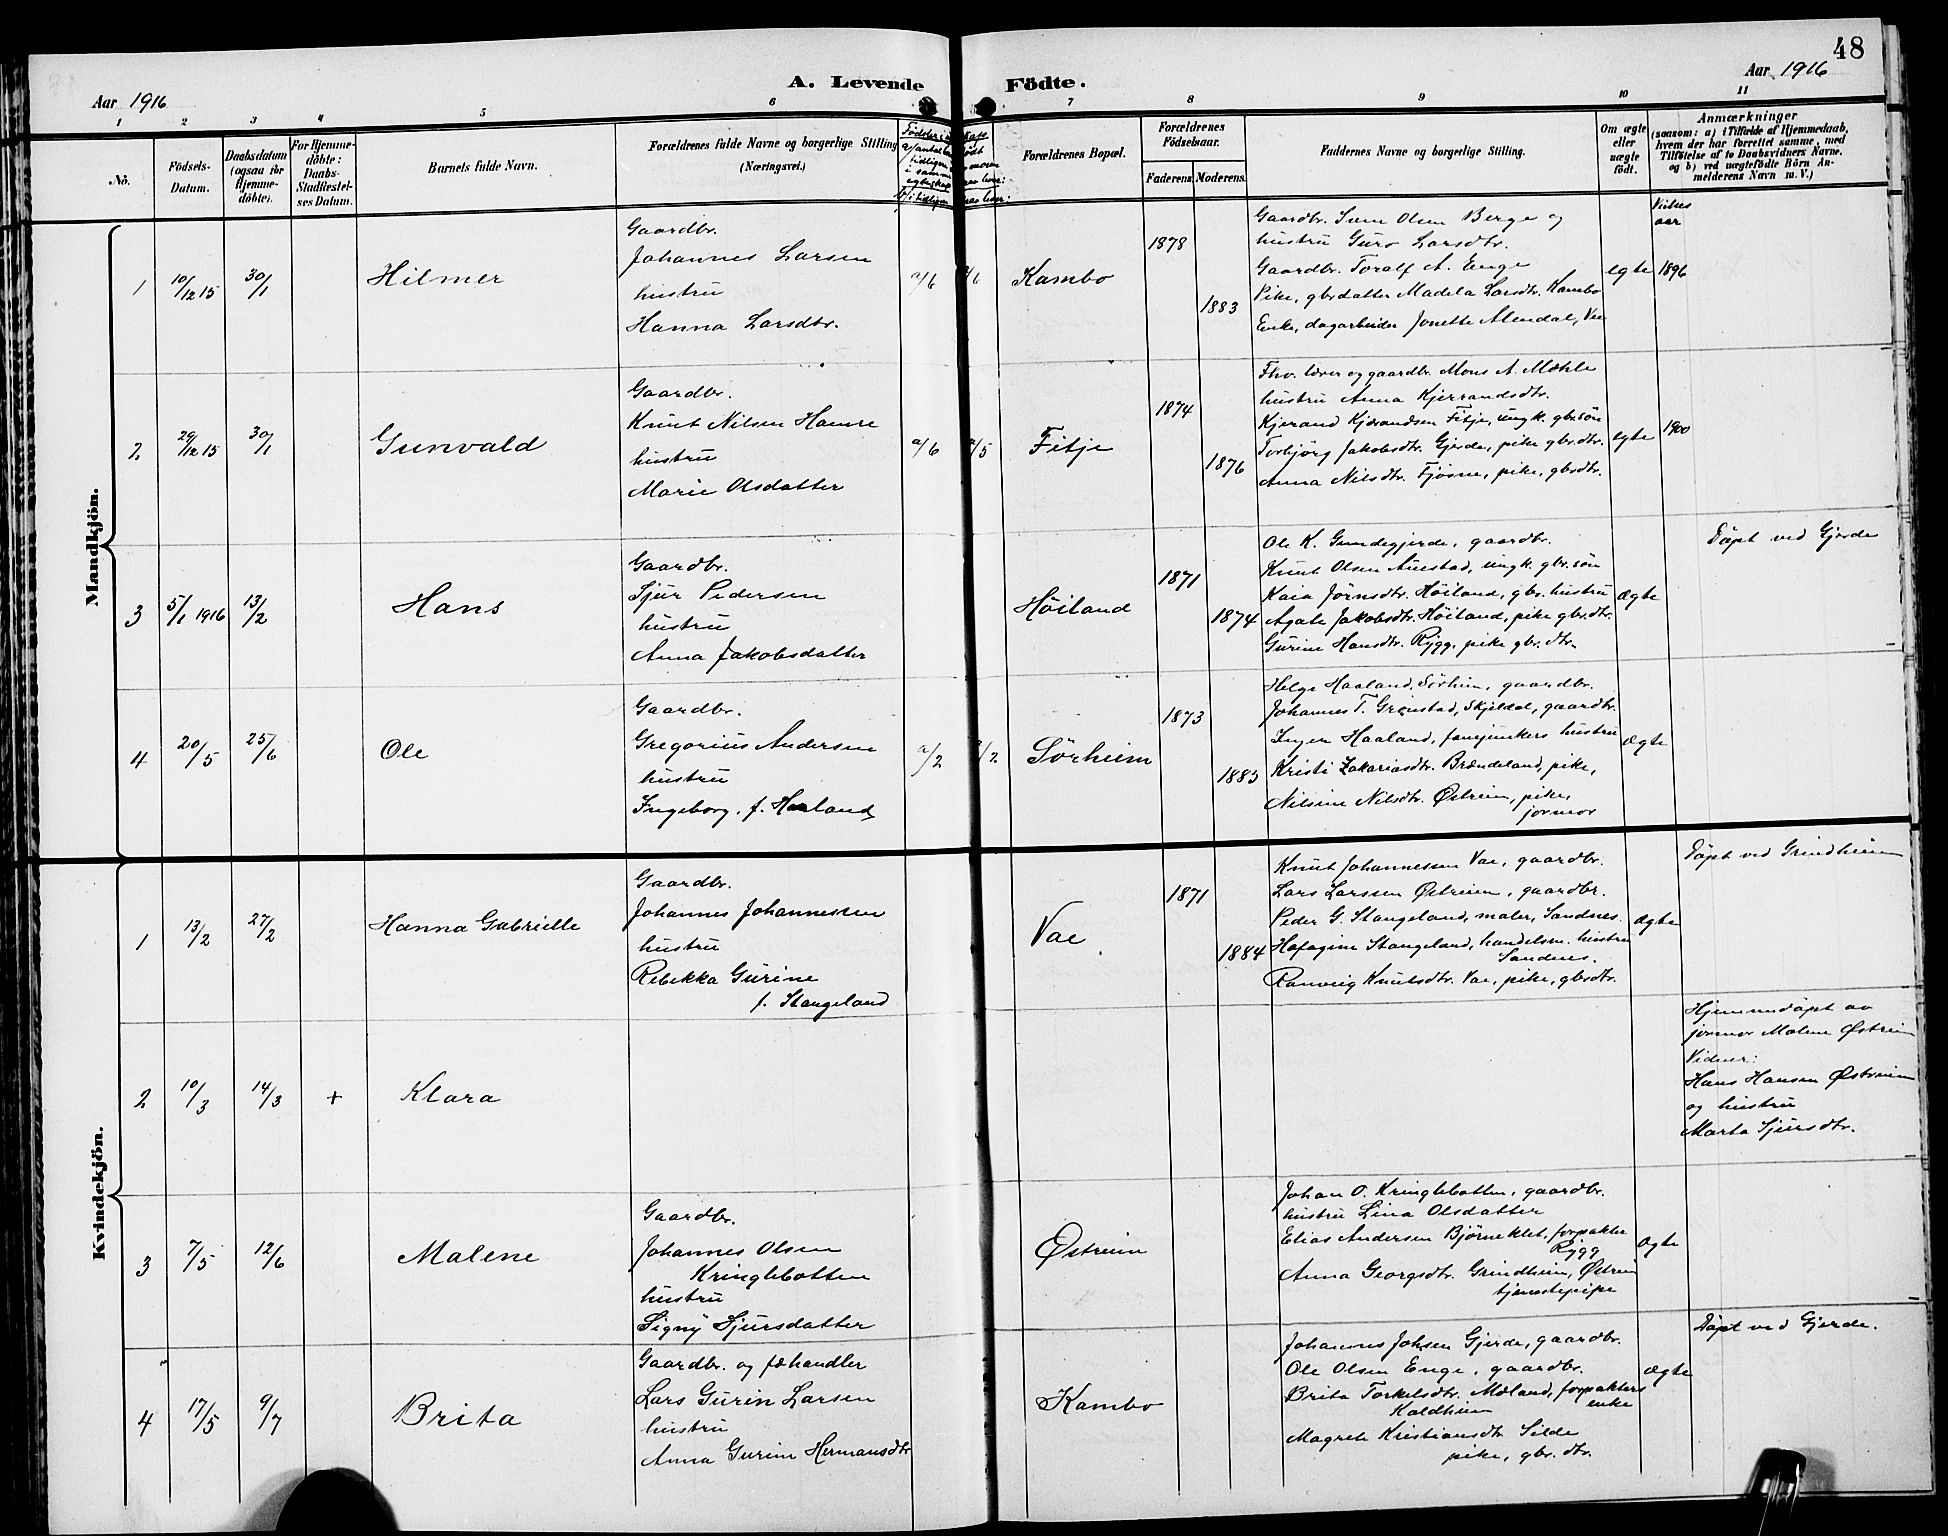 48
A. Levende Födte.
Aar 1916
Aar 1916
1 2 3 4 5 6 7 8 9 10 11
No.
Födsels-Datum.
Daabsdatum (ogsaa for Hjemme-döbte).
For Hjemme-döbte: Daabs-Stadfæstel-ses Datum.
Barnets fulde Navn.
Forældrenes fulde Navne og borgerlige Stilling (Næringsvei.)
Forældrenes Bopæl.
Forældrenes Födselsaar.
Faderens. Moderens.
Faddernes Navne og borgerlige Stilling.
Om ægte eller uægte födt.
Anmærkninger
(saasom: a) i Tilfælde af Hjemmedaab, hvem der har forrettet samme, med Tilföielse af to Daabsvidners Navne, og b) ved uægtefödte Börn An-melderens Navn m. V.)
Mandkjön.
1 10/12 15 30/1 Hilmer
Gaardbr.
Johannes Larsen
hustru
Hanna Larsdtr.
a/6
Kambo 1878 1883
Gaardbr. Sven Olsen Berge og
hustru Guro Larsdtr.
Gaardbr. Toralf A. Enge
Pike, gbrdatter Madela Larsdtr. Kambo
Enke, dagarbeider Jonette Alendal, Vae
egte
Vielses aar
1896
2 29/12 15 30/1 Gunvald
Gaardbr.
Knut Nilsen Hamre
hustru
Marie Olsdatter
a/6 a/5
Fitje 1874 1876
Fhv. lærer og gaardbr. Mons A. Mæhle
hustru Anna Kjerrandsdtr.
Kjerand Kjærandsen Fitje, ungk. gbr.sön
Torbjörg Jakobsdtr. Gjerde, pike gbr.dtr.
Anna Nilsdtr. Fjösne, pike, gbrdtr.
egte
1900
3 5/1 1916 13/2 Hans
Gaardbr.
Sjur Pedersen
hustru
Anna Jakobsdatter
Höiland 1871 1874
Ole K. Gundegjerde, gaardbr.
Knut Olsen Austad, ungk. gbr.sön
Kaia Jörnsdtr. Höiland, gbr. hustru
Agate Jakobsdtr. Höiland, pike gbr.dtr.
Gurine Hansdtr. Rygg, pike gbr. dtr.
ægte
Döpt ved Gjerde
4 20/5 25/6 Ole
Gaardbr.
Gregorius Andersen
hustru
Ingeborg, f. Haaland
a/2
Sörheim 1873 1883
Helge Haaland, Sörheim, gaardbr.
Johannes T. Grönstad, Skjeldal, gaardbr.
Inger Haaland, fanejunkers hustru
Kristi Zakariasdtr. Brændeland, pike,
Nilsine Nilsdtr. Østreim, pike,
jormor
ægte
Kvindekjön.
1 13/2 27/2 Hanna Gabrielle
Gaardbr.
Johannes Johannessen
hustru
Rebekka Gurine
f. Stangeland
Vae 1871 1884
Knut Johannessen Vae, gaardbr.
Lars Larssen Østreim, gaardbr.
Peder G. Stangeland, maler, Sandnes.
Stangeland, handelsm. hustru
Sandnes.
Ranveig Knutsdtr. Vae, pike, gbrdtr.
ægte
Döpt ved Grindheim
2 10/3 14/3 + Klara
Hjemmedöpt av
jormor Malene Østreim
Vidner:
Hans Hansen Østreim
og hustru
Marta Sjursdtr.
3 7/5 12/6 Malene
Gaardbr.
Johannes Olsen
Kringlebotten
hustru
Signy Sjursdatter
Østreim
Johan O. Kringlebotten, gaardbr.
hustru Lina Olsdatter
Elias Andersen Björneklet, forpakter
Rygg
Anna Georgsdtr. Grindheim, Østreim
tjenestepike
ægte
4 17/5 9/7 Brita
Gaardbr. og fæhandler
Lars Gurin Larsen
hustru
Anna Gurine Hermansdtr
Kambo
Johannes Johsen Gjerde, gaardbr.
Ole Olsen Enge, gaardbr.
Brita Torkelsdtr. Mæland, forpakters
Haldheim enke
Magrete Kristiansdtr Silde
pike, gbr. dtr.
ægte
Döpt ved Gjerde.